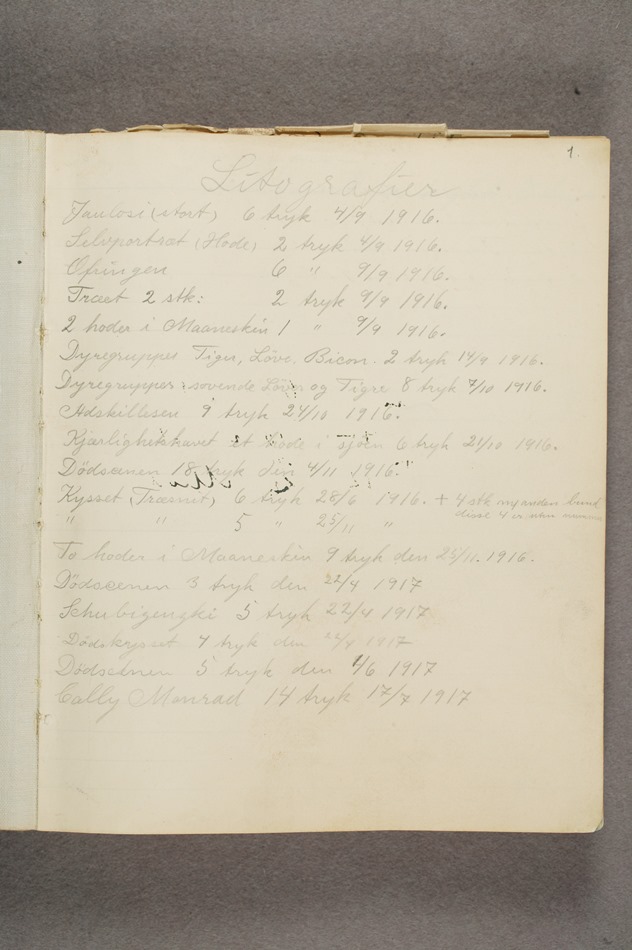 1.
Litografier
Jaulosi (stort) 6 tryk 4/9 1916.
Selvportræt (Hode) 2 tryk 4/9 1916.
Ofringen 6 " 9/9 1916.
Træet 2 stk: 2 tryk 9/9 1916.
2 hoder i Maaneskin 1 " 9/9 1916.
Dyregrupper Tiger, Löve, Bison. 2 tryk 14/9 1916.
Dyregrupper: sovende Löver og Tigre 8 tryk 7/10 1916.
Adskillesen 9 tryk 24/10 1916.
Kjærlighetshavet et hode i sjöen 6 tryk 21/10 1916.
Dödscenen 18 tryk den 4/11 1916.
Kysset (Træsnit) 6 tryk 28/6 1916. + 4 stk
disse 4 er uten
" " 5 " 25/11 "
To hoder i Maaneskin 9 tryk den 25/11. 1916.
Dödscenen 3 tryk den 22/4 1917
5 tryk 22/4 1917
Dödskysset 4 tryk den 1917
Dödscenen 5 tryk den 4/6 1917
Cally Monrad 14 tryk 17/7 1917